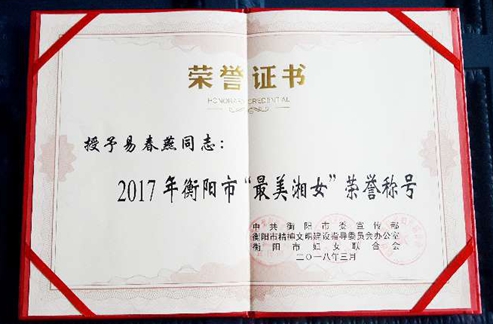 荣誉证书
HONORARY CREDENTIAL
授予易春燕同志：
2017年衡阳市“最美湘女”荣誉称号
中共衡阳市委宣传部
衡阳市精神文明建设指导委员会办公室
衡阳市妇女联合会
二〇一八年三月